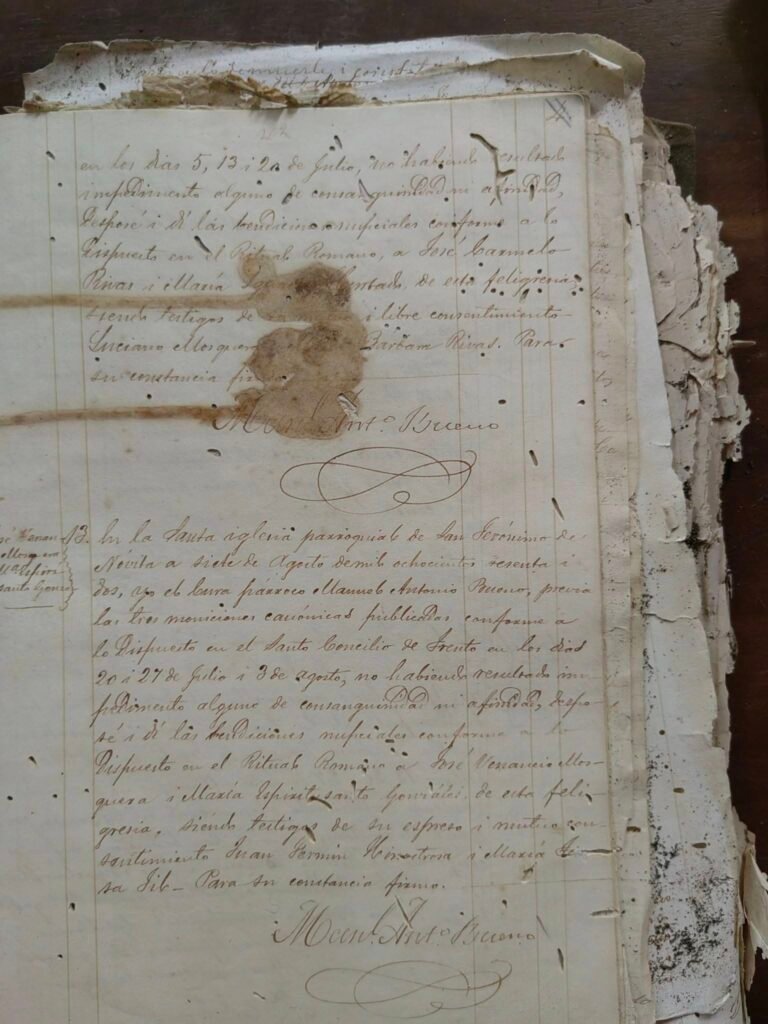 en los dias 5, 13 i 20 de Julio, no habiendo resultado
impedimento alguno de consanguinidad ni afinidad,
desposé i dí las bendiciones nupciales conforme a lo
dispuesto en el Ritual Romano, a José Carmelo
Rivas i María Hurtado, de esta feligresia,
siendo testigos de i libre consentimiento
Luciano Mosquera Barbara Rivas. Para
su constancia firmo
Manl. Anto. Bueno
13. En la Santa iglesia parroquial de San Jerónimo de
Nóvita a siete de Agosto de mil ochocientos sesenta i
dos, yo el Cura párroco Manuel Antonio Bueno, previa
las tres moniciones canónicas publicadas conforme a
lo dispuesto en el Santo Concilio de Trento en los dias
20 i 27 de Julio i 3 de agosto, no habiendo resultado im-
pedimento alguno de consanguinidad ni afinidad, despo-
sé i dí las bendiciones nupciales conforme a lo
dispuesto en el Ritual Romano a José Venancio Mos-
quera i María Espiritusanto Gonzáles, de esta feli-
gresia, siendo testigos de su espreso i mutuo con
sentimiento Juan Fermin Hinestrosa i María
sa Gil – Para su constancia firmo.
Manl. Anto. Bueno